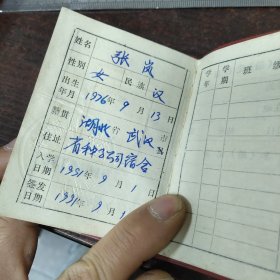 姓名 张岚
性别 女 民族 汉
出生年月 1976年9月13日
籍贯 湖北省武汉市
住址 省种子公司宿舍
入学日期 1991年9月1日
签发日期 1991年9月1
学年 学期 班级